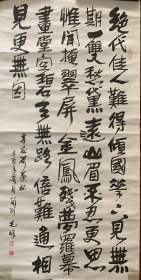 絕代佳人難得傾國花下見無
期一雙愁黛遠山眉不忍更思
惟閒掩翠屏金鳳殘夢羅幕
畫堂空碧天無路信難通相
見更無因